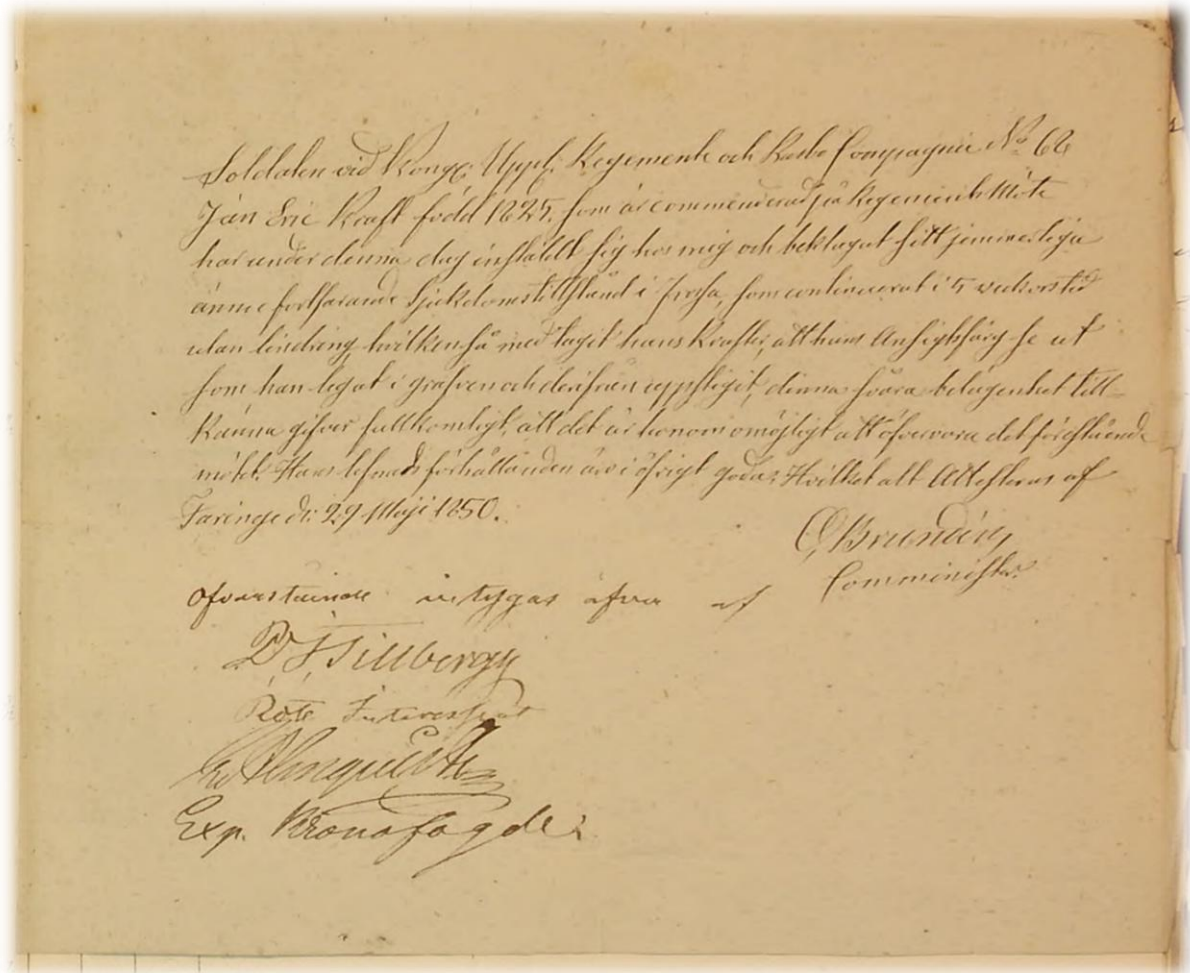 Soldaten vid Kongl: Uppl: Regemente och Rasbo Compagnie No 66
Jan Eric Kraft född 1825, som är commenderad på Regements Möte
har under denna dag instäldt sig hos mig och beklagat sitt jemmerliga
ännu fortfarande Sjukdomstillstånd i Frossa, som continuerat i 5 veckors tid
utan lindring, hvilken så med tagit hans Krafter, att hans Ansigtsfärg se ut
som han legat i grafven och derifrån uppstigit, denna svåra belägenhet till-
känna gifver fullkomligt, att det är honom omöjligt att öfvervara det förestående
mötet. Hans lefnadsförhållanden äro i öfrigt goda; Hvilket allt Attesteras af
Faringe d: 29 Maji 1850.
C, Brundin
Comminister.
Ofvanstående intygas äfven af
P, F, Sillberg
Rote Interessent
Almquist
Exp. Kronofogde.